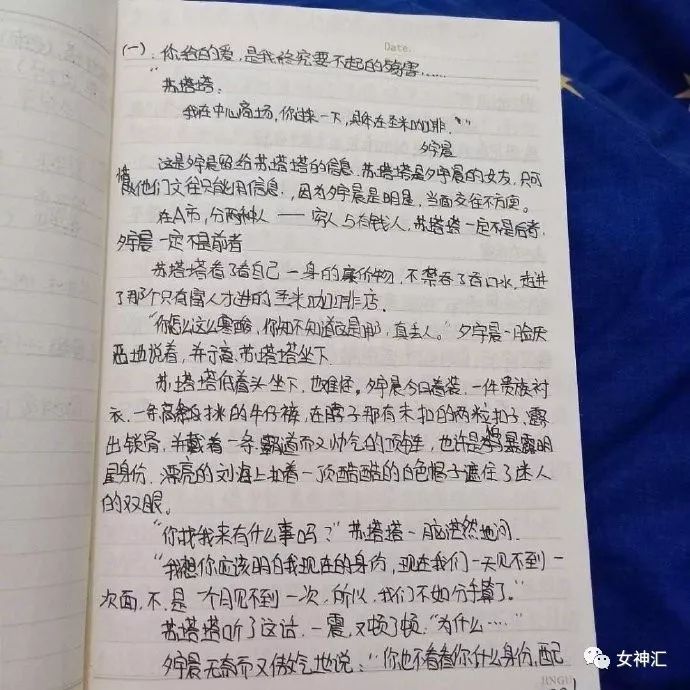 Date.
(一)：你给的爱，是我终究要不起的殇害……
“苏塔塔：
我在中心商场，你过来一下，具体在圣米咖啡.”
夕宇晨
这是夕宇晨照给苏塔塔的信息.苏塔塔是夕宇晨的女友，只可
惜他们交往只能用信息，因为夕宇晨是明星，当面交往不方便。
在A市，分两种人——穷人与有钱人，苏塔塔一定不是后者，
夕宇晨一定不是前者
苏塔塔看了看自己一身的廉价物，不禁吞了吞口水，走进
了那个只有富人才进的圣米咖啡店.
“你怎么这么寒酸，你知不知道这是那儿，真丢人。”夕宇晨一脸厌
恶地说着，并示意苏塔塔坐下.
苏塔塔低着头坐下，也难怪。夕宇晨今日着装，一件贵族衬
衣，一条高贵的牛仔裤，在脖子那有未扣的两粒扣子，露
出锁骨，并戴着一条霸道而又帅气的项链，也许是怕暴露明
星身份，漂亮的刘海上扣着一顶酷酷的白色帽子遮住了迷人
的双眼。
“你找我来有什么事吗？”苏塔塔一脸茫然地问.
“我想你应该明白我现在的身份，现在我们一天见不到一
次面，不，是一个月见不到一次，所以，我们不如分手算了。”
苏塔塔听了这话，一震，又顿了顿，“为什么……”
夕宇晨无奈而又傲气地说：“你也不看看你什么身份，配
JINGU
女神汇